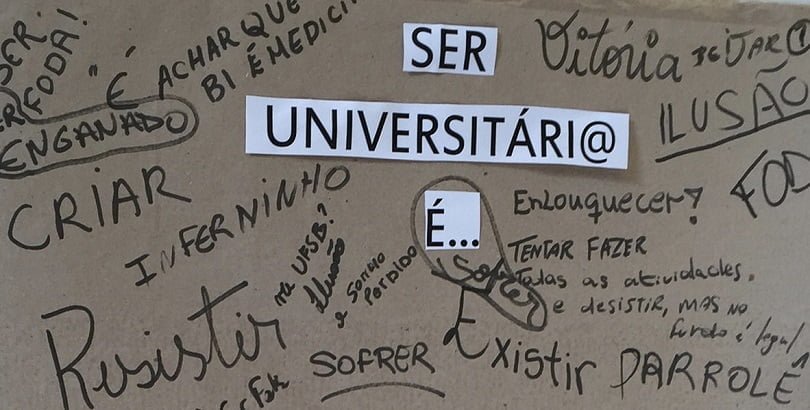 SER
UNIVERSITÁRI@
É...
SER
FODA!
"É ACHAR QUE
BI É MEDICI
Vitória
ILUSÃO
ENGANADO
CRIAR
INFERNINHO
Enlouquecer?
FOD
na UFSB?
Ilusão
e SONHO
PERDIDO
Sofrer
TENTAR FAZER
Todas as atividades.
e desistir, mas no
fundo é legal
Resistir
SOFRER
Existir
DARROLÊ